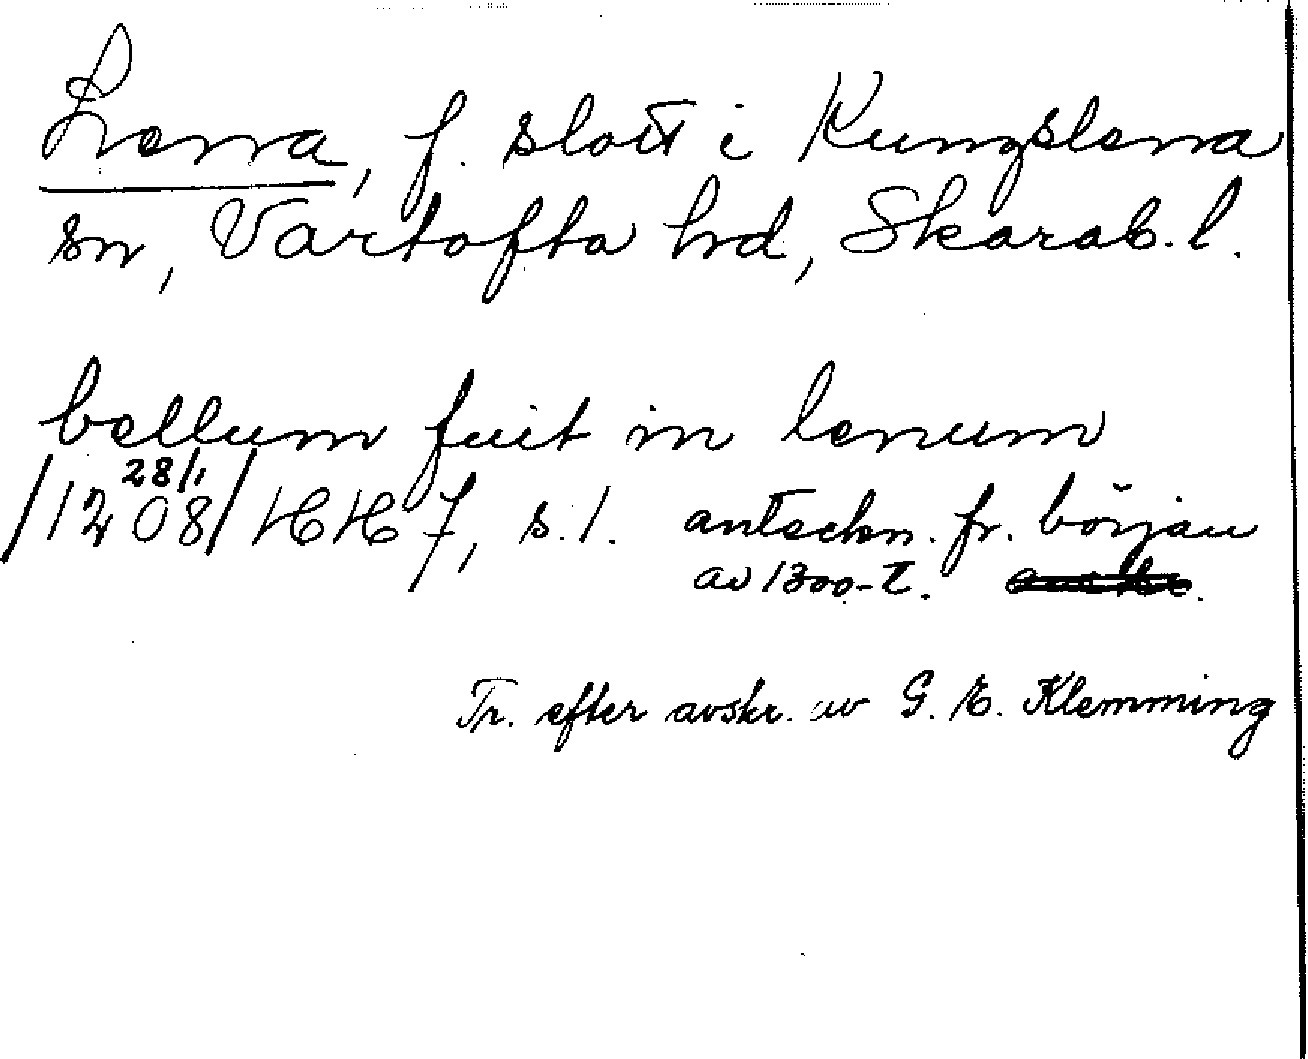 Lena, f. slott i Kungslena
sn, Vartofta hd, Skarab. l.
bellum fuit in lenum
28/1
/1208/ HH 7, s. 1. anteckn. fr. början
av 1300-t.
Tr. efter avskr. av G. E. Klemming